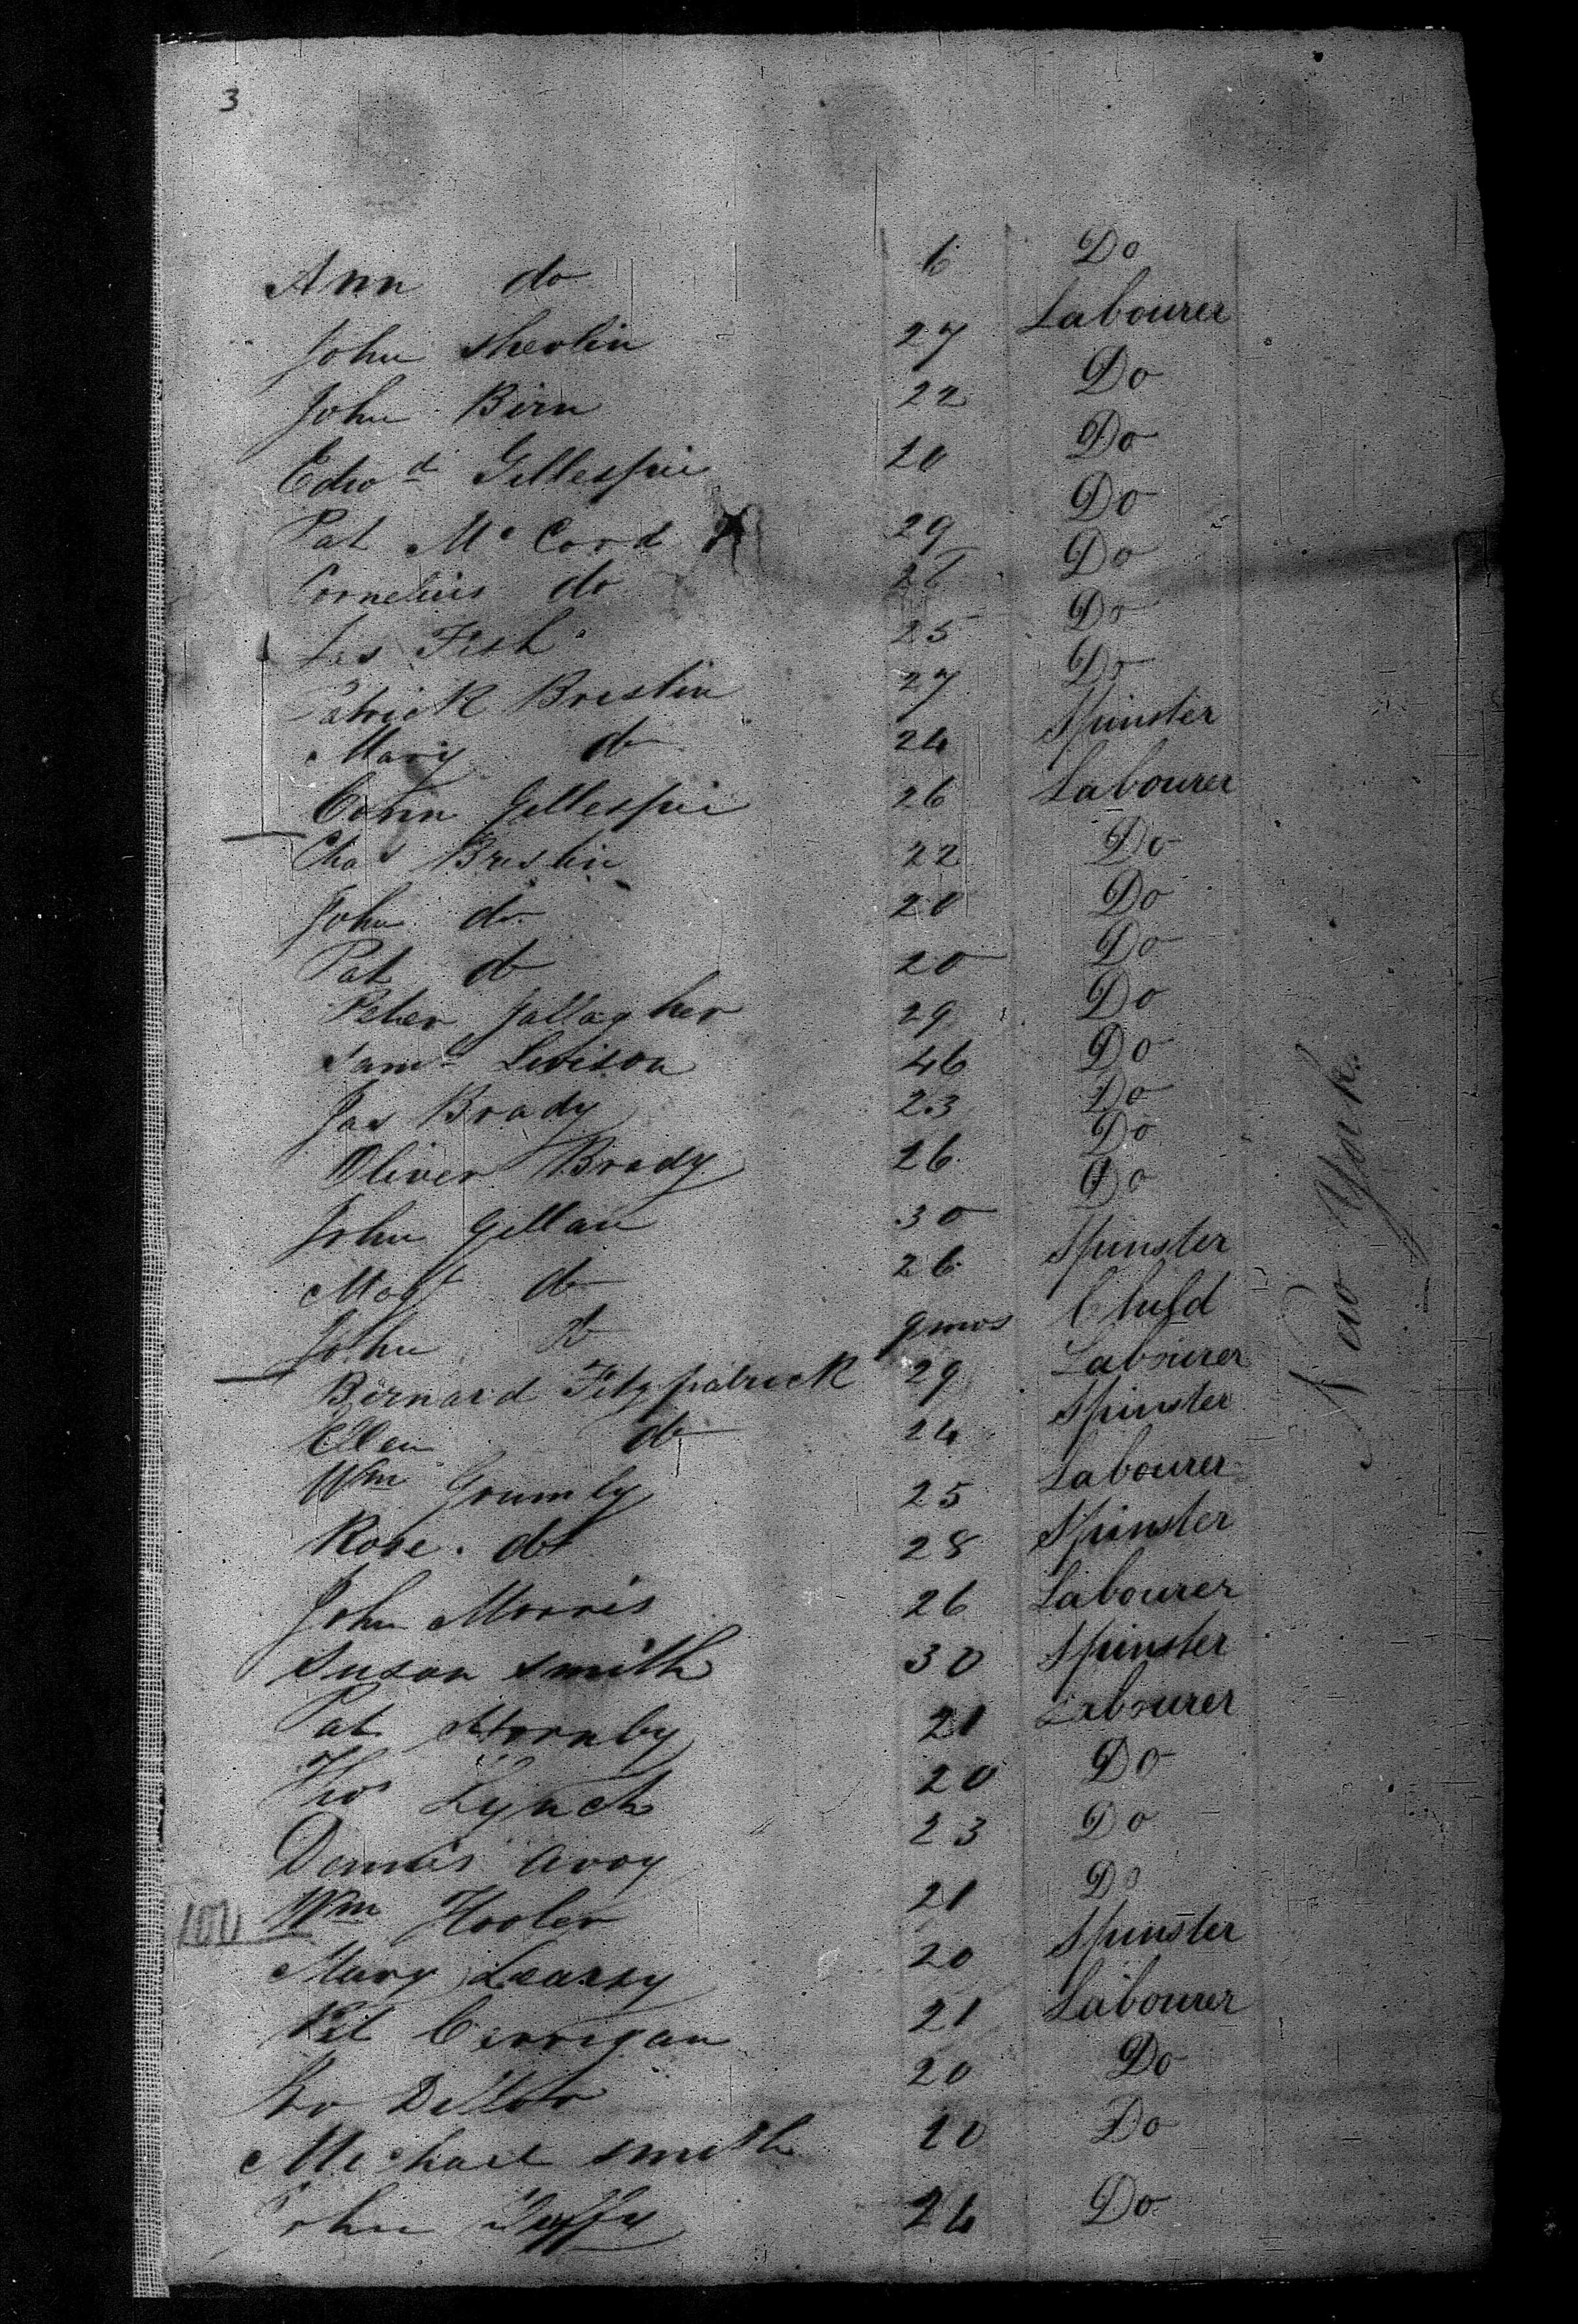 3
Ann do 6 Do
John Sherlin 27 Labourer
John Birn 22 Do
Edwd Gillespie 20 Do
Pat McCord 29 Do
Cornelius do Do
Jas Fish 25 Do
Patrick Breslin 27 Do
Mary do 24 Spinster
Conn Gillespie 26 Labourer
Chas Breslin 22 Do
John do 20 Do
Pat do 20 Do
Peter Gallagher 29 Do
Saml Levison 46 Do
Jas Brady 23 Do
Oliver Brady 26 Do
John Gillan 30 Do
Magt do 26 Spinster
John do 9 mos Child
Bernard Fitzpatrick 29 Labourer
Ellen do 24 Spinster
Wm Grumly 25 Labourer
Rose do 28 Spinster
John Morris 26 Labourer
Susan Smith 30 Spinster
Pat Hornby 21 Labourer
Thos Lynch 20 Do
Dennis Avoy 23 Do
Wm Hooler 21 Do
Mary 20 Spinster
Pat Cerrigan 21 Labourer
20 Do
Michael Smith 20 Do
John Duffy 24 Do
New York